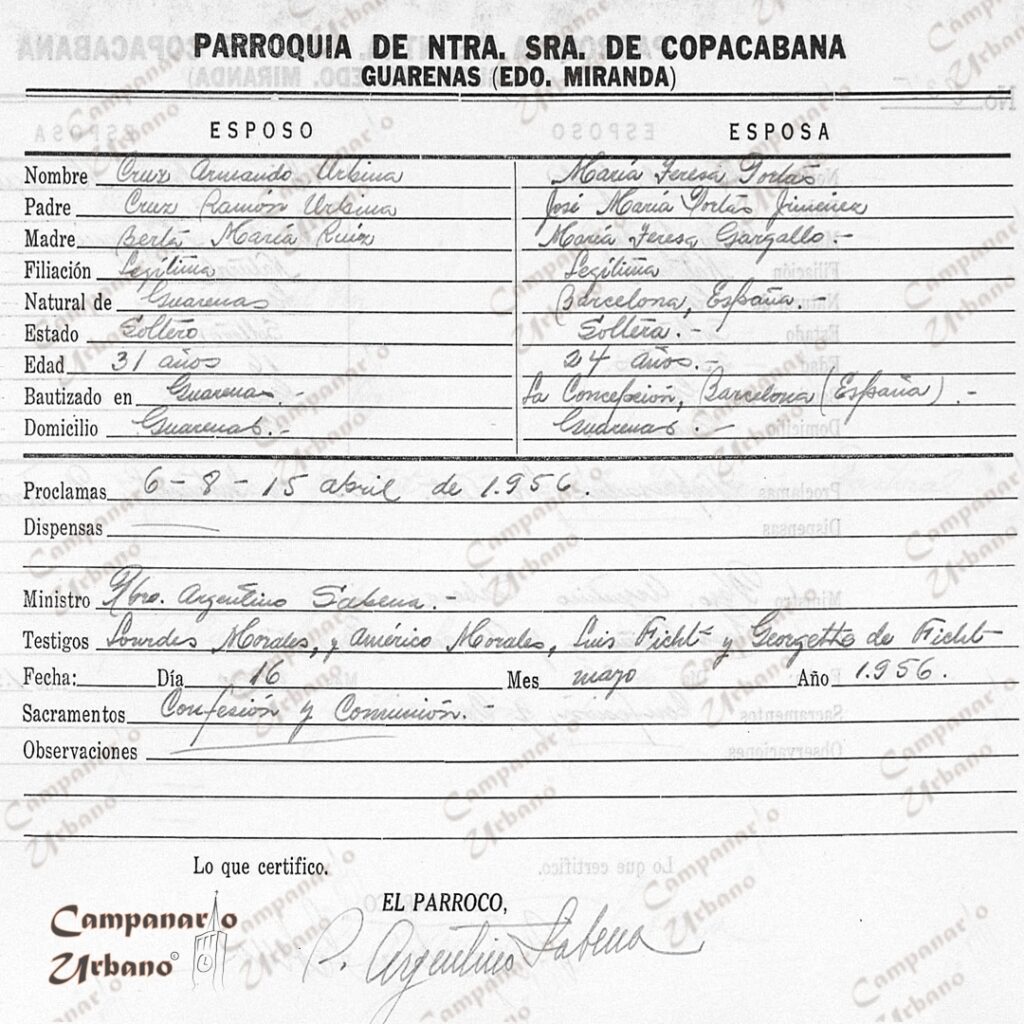 PARROQUIA DE NTRA. SRA. DE COPACABANA
GUARENAS (EDO. MIRANDA)
ESPOSO ESPOSA
Nombre Cruz Armando Urbina María Teresa Portas
Padre Cruz Ramón Urbina José María Portas Jiménez
Madre Berta María Ruiz María Teresa Gargallo.-
Filiación Legítima Legítima
Natural de Guarenas Barcelona, España.-
Estado Soltero Soltera.-
Edad 31 años 24 años.-
Bautizado en Guarenas.- La Concepción, Barcelona (España).-
Domicilio Guarenas.- Guarenas.-
Proclamas 6-8-15 abril de 1.956.
Dispensas
Ministro Pbro. Argentino Sabena.-
Testigos Lourdes Morales, y Américo Morales, Luis Ficht y Georgette de Ficht
Fecha: Día 16 Mes mayo Año 1.956.
Sacramentos Confesión y Comunión.-
Observaciones
Lo que certifico.
EL PARROCO,
P. Argentino Sabena
Campanario
Urbano©